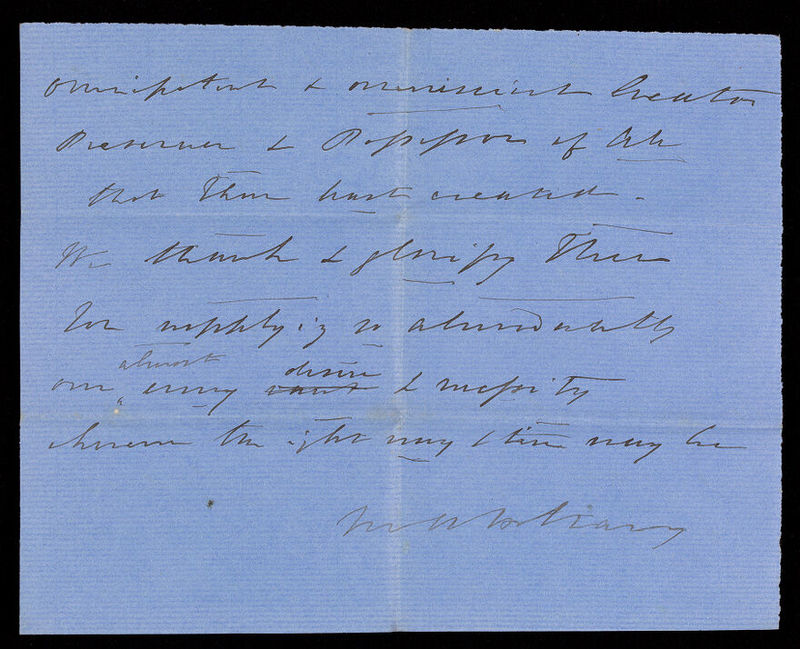 Omnipotent & omniscient Creator
Preserver & Possessor of All
that Thou hast created -
We thank & glorify Thee
for supplying so abundantly
almost desire
our every want & necessity
the right way & time may be